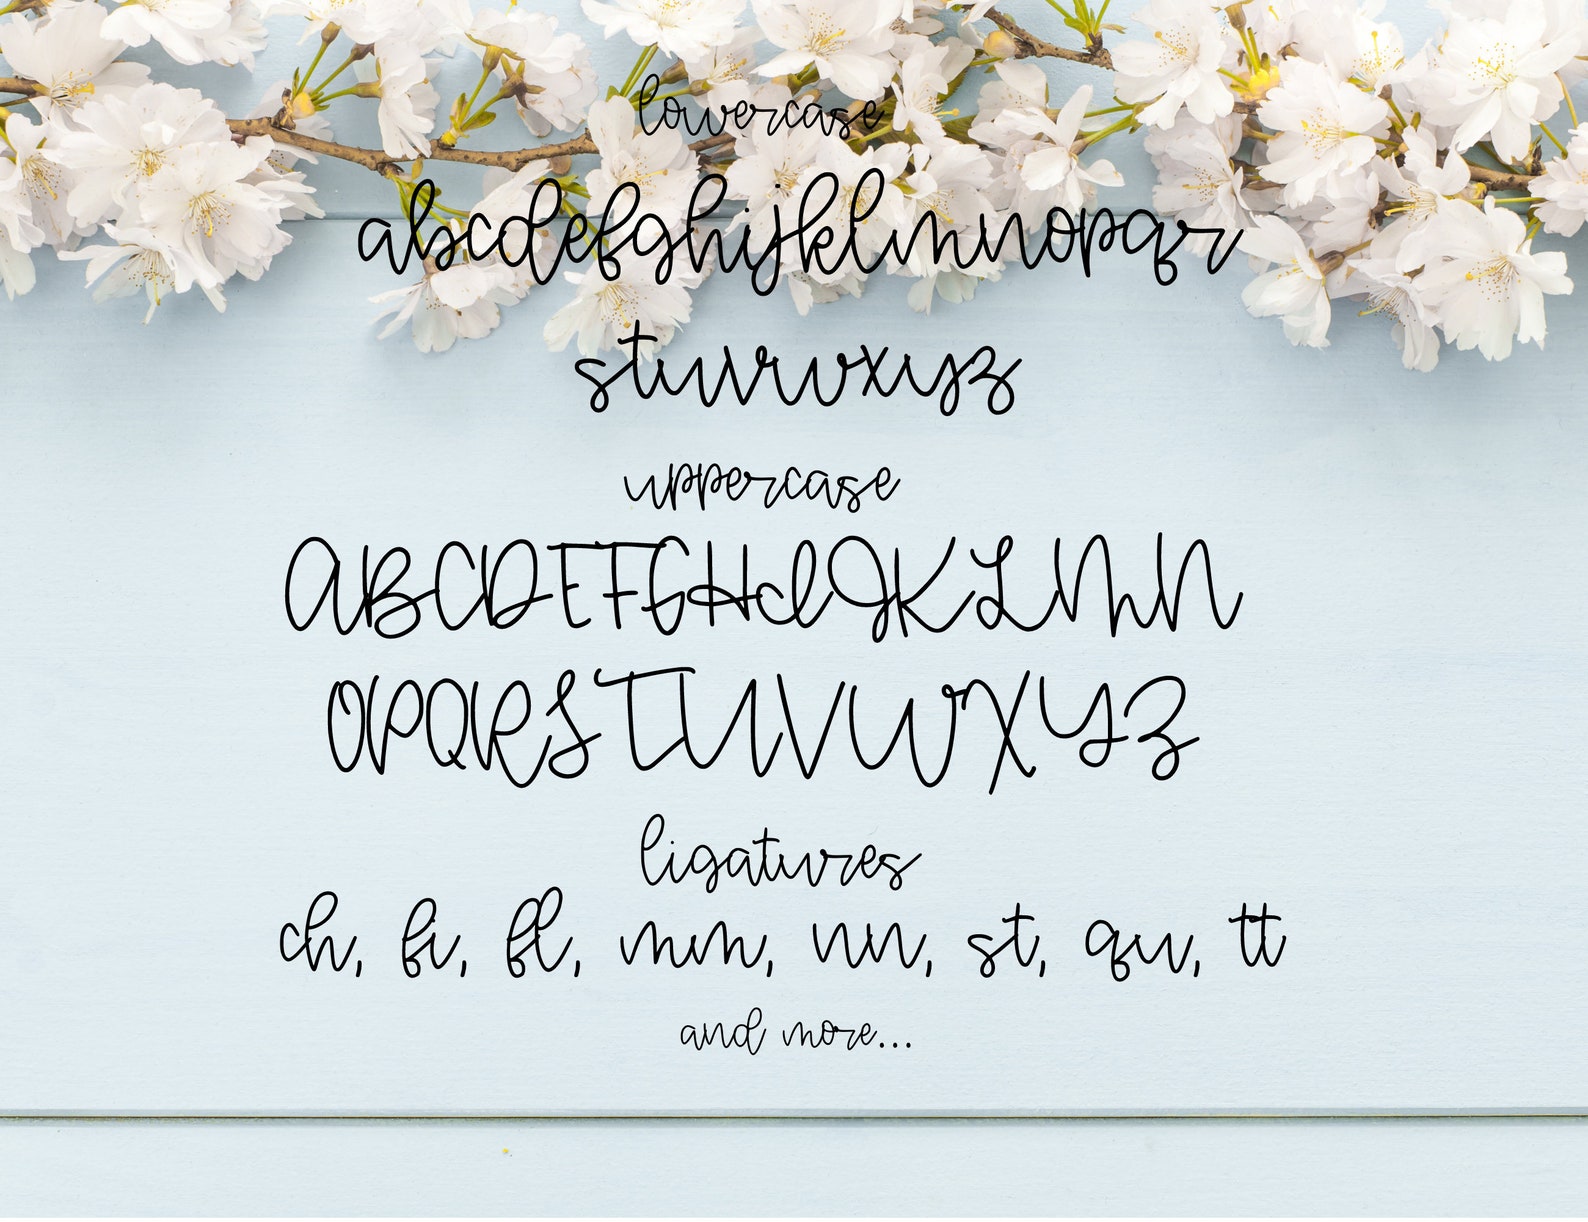 lowercase
abcdefghijklmnopqr
stuvwxyz
uppercase
ABCDEFGHIJKLMN
OPQRSTUVWXYZ
ligatures
ch, fi, fl, mm, nn, st, qu, tt
and more...